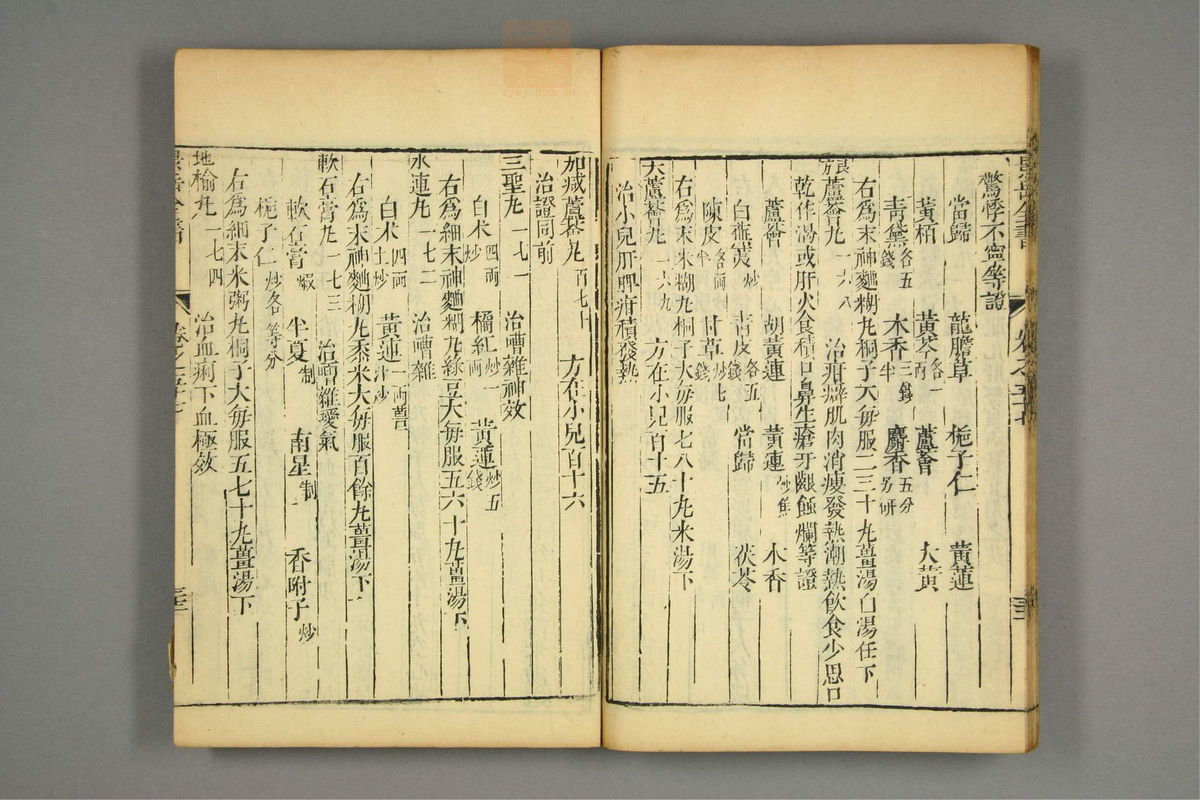 驚悸不寧等證
當歸 龍膽草 梔子仁 黃連
黃栢 黃芩各一兩 蘆薈 大黃
青黛各五錢 木香三錢半 麝香五分另研
右為末神麯糊丸桐子大每服二三十丸薑湯白湯任下
蘆薈丸一六八 治疳癖肌肉消瘦發熱潮熱飲食少思口
乾作渴或肝火食積口鼻生瘡牙齦蝕爛等證
蘆薈 胡黃連 黃連炒焦 木香
白蕪荑炒 青皮各五錢 當歸 茯苓
陳皮各一兩半 甘草炒七錢
右為末米糊丸桐子大每服七八十丸米湯下
大蘆薈丸一六九 方在小兒百十五
治小兒肝脾疳積發熱
加减蘆薈丸百七十 方在小兒百十六
治證同前
三聖丸一七一 治嘈雜神效
白术四兩炒 橘紅炒一兩 黃連炒五錢
右為細末神麯糊丸綠豆大每服五六十丸薑湯下
朮連丸一七二 治嘈雜
白术四兩土炒 黃連一兩薑汁炒
右為末神麯糊丸黍米大每服百餘丸薑湯下
軟石膏丸一七三 治嘈雜噯氣
軟石膏煅 半夏制 南星制 香附子炒
梔子仁炒各等分
右為細末米粥丸桐子大每服五七十丸薑湯下
地榆丸一七四 治血痢下血極效